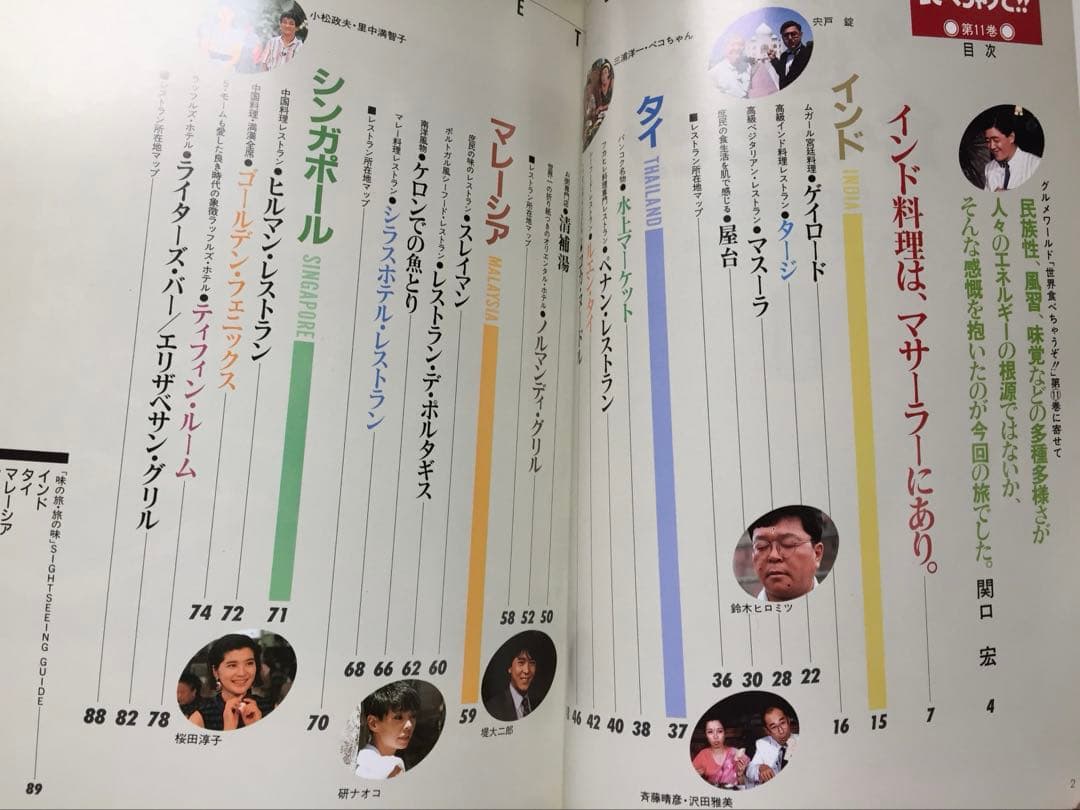 第11巻
目次
グルメワールド「世界食べちゃうぞ!!」第⑪巻に寄せて
民族性、風習、味覚などの多種多様さが
人々のエネルギーの根源ではないか、
そんな感慨を抱いたのが今回の旅でした。関口 宏 4
インド料理は、マサーラーにあり。 7
インド INDIA 15
16
ムガール宮廷料理●ゲイロード 22
高級インド料理レストラン●タージ 28
高級ベジタリアン・レストラン●マスーラ 30
庶民の食生活を肌で感じる●屋台 36
■レストラン所在地マップ
宍戸 錠
鈴木ヒロミツ
斉藤晴彦・沢田雅美
タイ THAILAND 37
38
バンコク名物●水上マーケット 40
ペナン・レストラン 42
46
三浦洋一・ペコちゃん
清補湯 50
世界一の折り紙つきのオリエンタル・ホテル●ノルマンディ・グリル 52
■レストラン所在地マップ 58
堤大二郎
マレーシア MALAYSIA 59
庶民の味のレストラン●スレイマン 60
ポルトガル風シーフード・レストラン●レストラン・デ・ポルタギス 62
南洋風物●ケロンでの魚とり 66
マレー料理レストラン●シラスホテル・レストラン 68
■レストラン所在地マップ 70
研ナオコ
小松政夫・里中満智子
シンガポール SINGAPORE 71
中国料理レストラン●ヒルマン・レストラン 72
中国料理・満漢全席●ゴールデン・フェニックス 74
S・モームも愛した良き時代の象徴ラッフルズ・ホテル●ティフィン・ルーム 78
ラッフルズ・ホテル●ライターズ・バー/エリザベサン・グリル 82
■レストラン所在地マップ 88
桜田淳子
「味の旅・旅の味」SIGHTSEEING GUIDE 89
インド
タイ
マレーシア
2